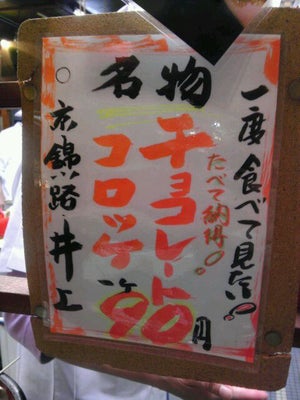 一度食べて見ない!
たべて納得!
名物
チョコレート
コロッケ
一ケ90円
京錦小路・井上